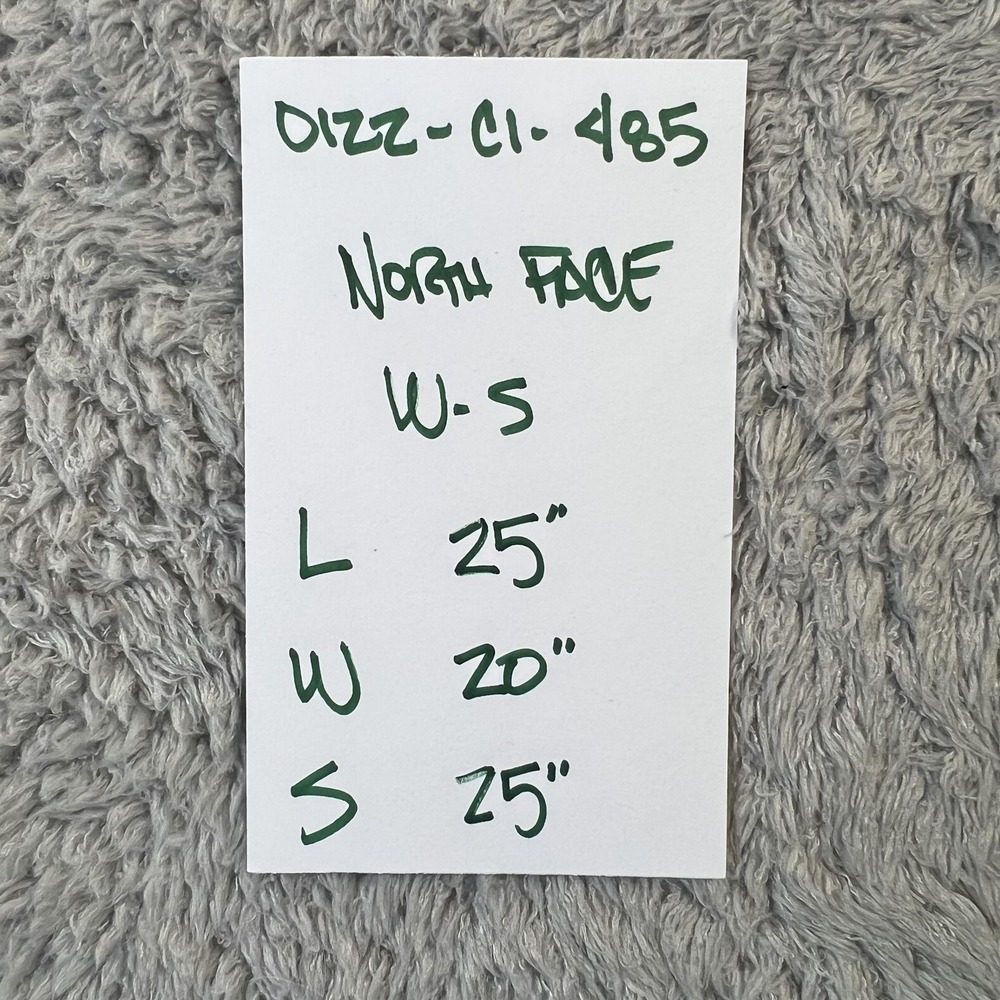 0122-C1-485
NORTH FACE
W-S
L 25"
W 20"
S 25"